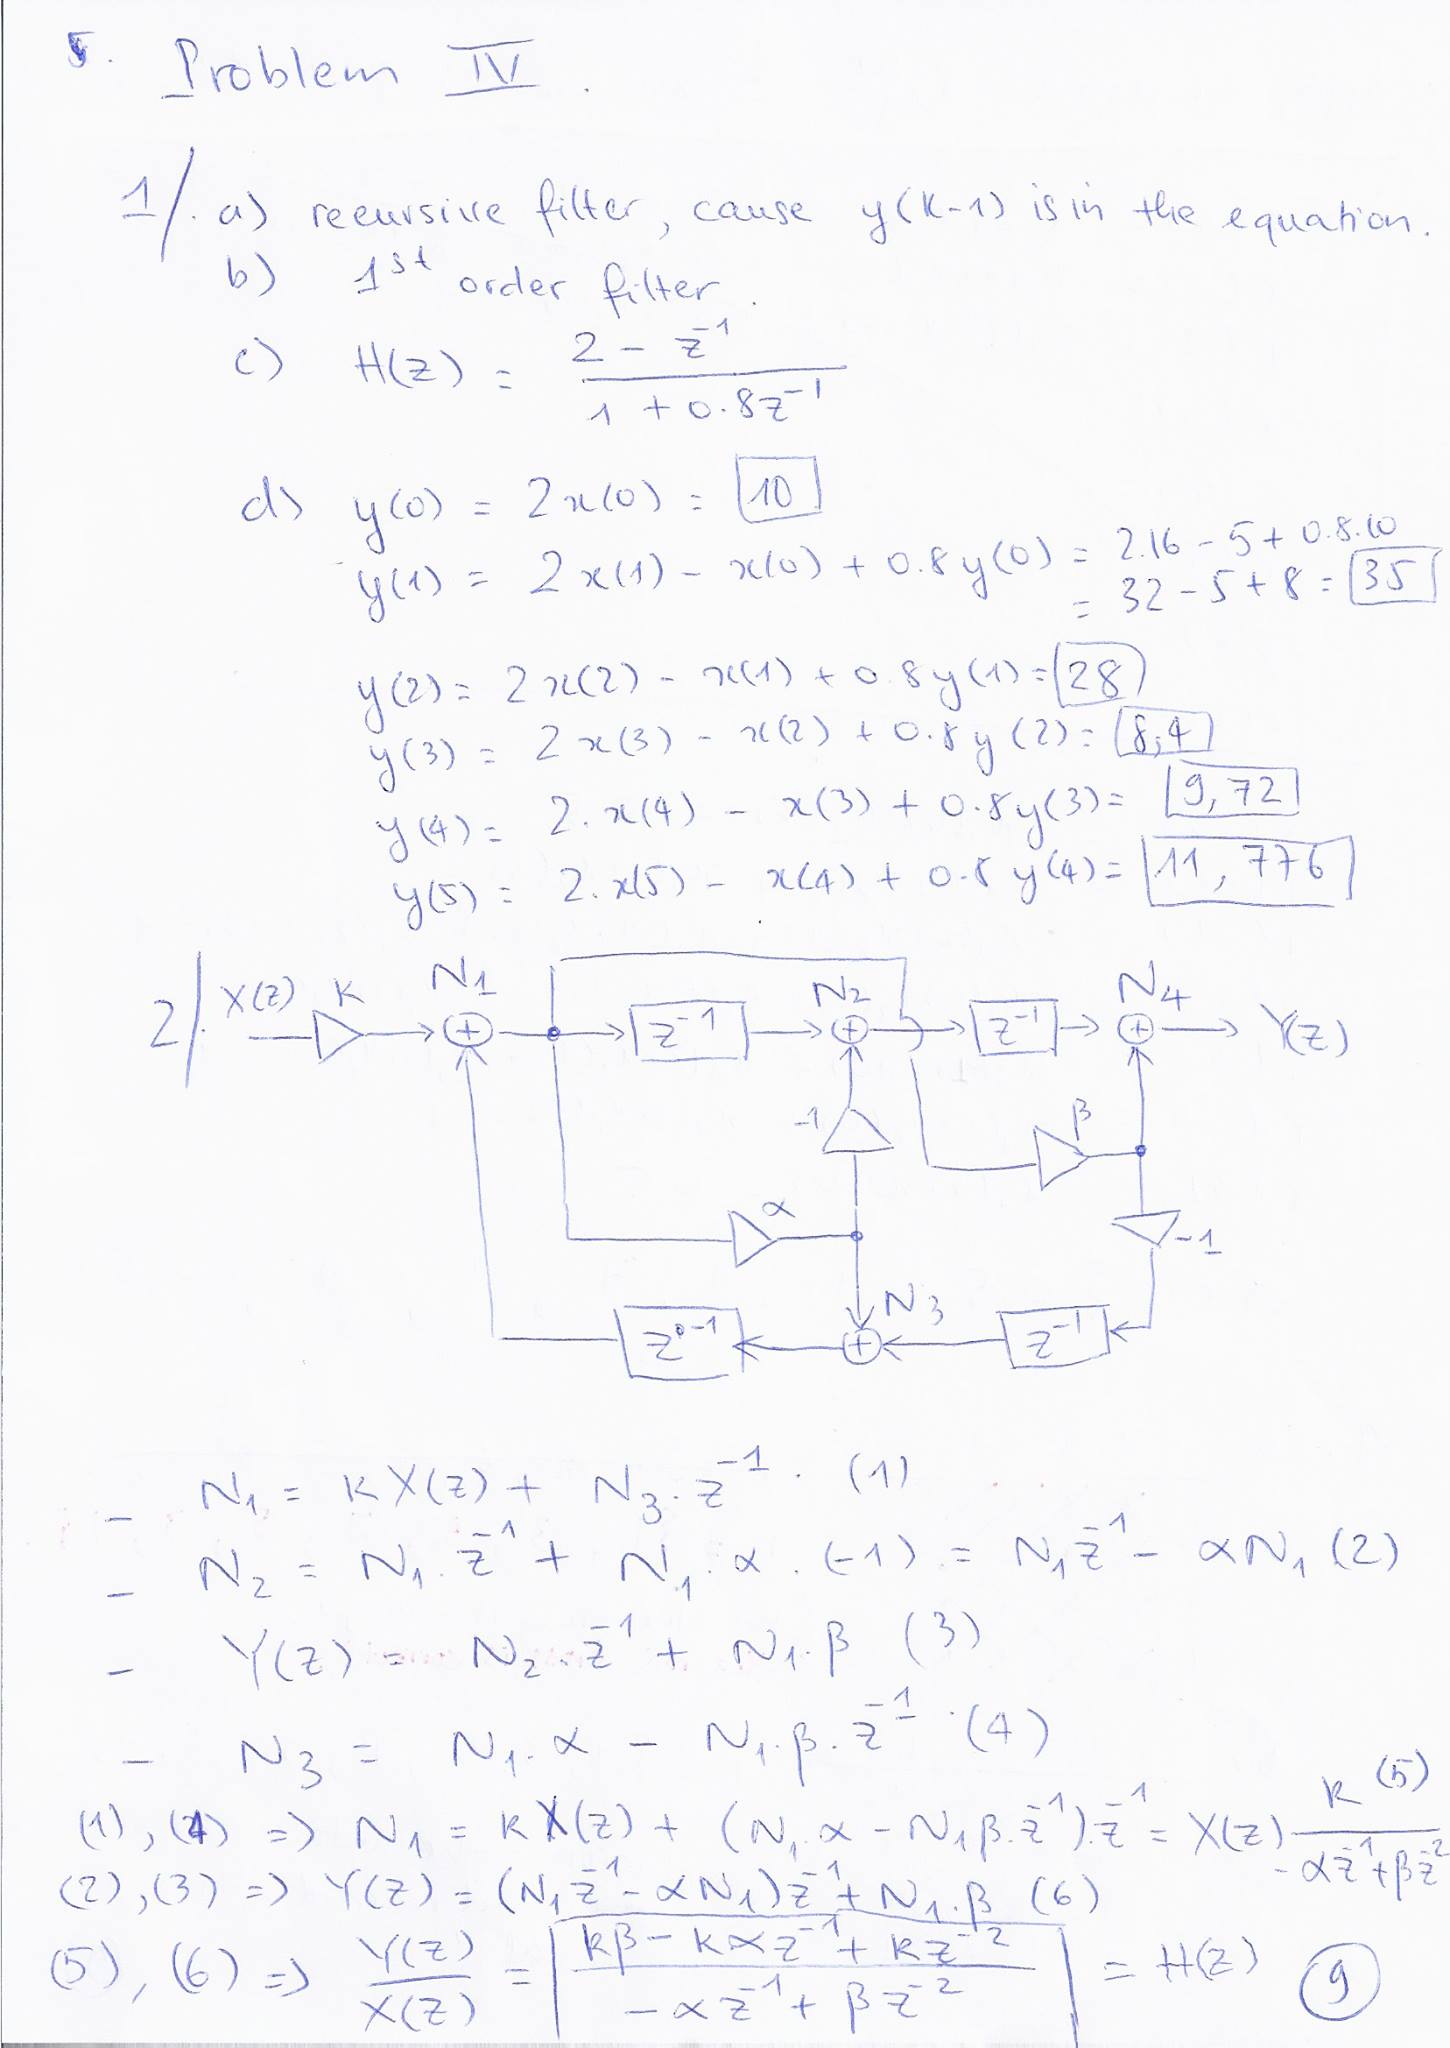 5. Problem IV.
1/. a) recursive filter, cause y(k-1) is in the equation.
b) 1st order filter.
c) H(z) = (2 - z⁻¹) / (1 + 0.8z⁻¹)
d) y(0) = 2x(0) = 10
y(1) = 2x(1) - x(0) + 0.8y(0) = 2.16 - 5 + 0.8.10
= 32 - 5 + 8 = 35
y(2) = 2x(2) - x(1) + 0.8y(1) = 28
y(3) = 2x(3) - x(2) + 0.8y(2) = 8,4
y(4) = 2.x(4) - x(3) + 0.8y(3) = 9,72
y(5) = 2.x(5) - x(4) + 0.8y(4) = 11,776
2/. X(z) K N1 z⁻¹ N2 z⁻¹ N4 Y(z)
-1 β
α -1
z⁻¹ N3 z⁻¹
- N₁ = KX(z) + N₃.z⁻¹. (1)
- N₂ = N₁.z⁻¹ + N₁.α.(-1) = N₁z⁻¹ - αN₁ (2)
- Y(z) = N₂.z⁻¹ + N₁.β (3)
- N₃ = N₁.α - N₁.β.z⁻¹ .(4)
(1), (4) => N₁ = KX(z) + (N₁.α - N₁β.z⁻¹).z⁻¹ = X(z) K / (-αz⁻¹ + βz⁻²) (5)
(2), (3) => Y(z) = (N₁z⁻¹ - αN₁)z⁻¹ + N₁.β (6)
(5), (6) => Y(z)/X(z) = (kβ - kαz⁻¹ + kz⁻²) / (-αz⁻¹ + βz⁻²) = H(z) 9